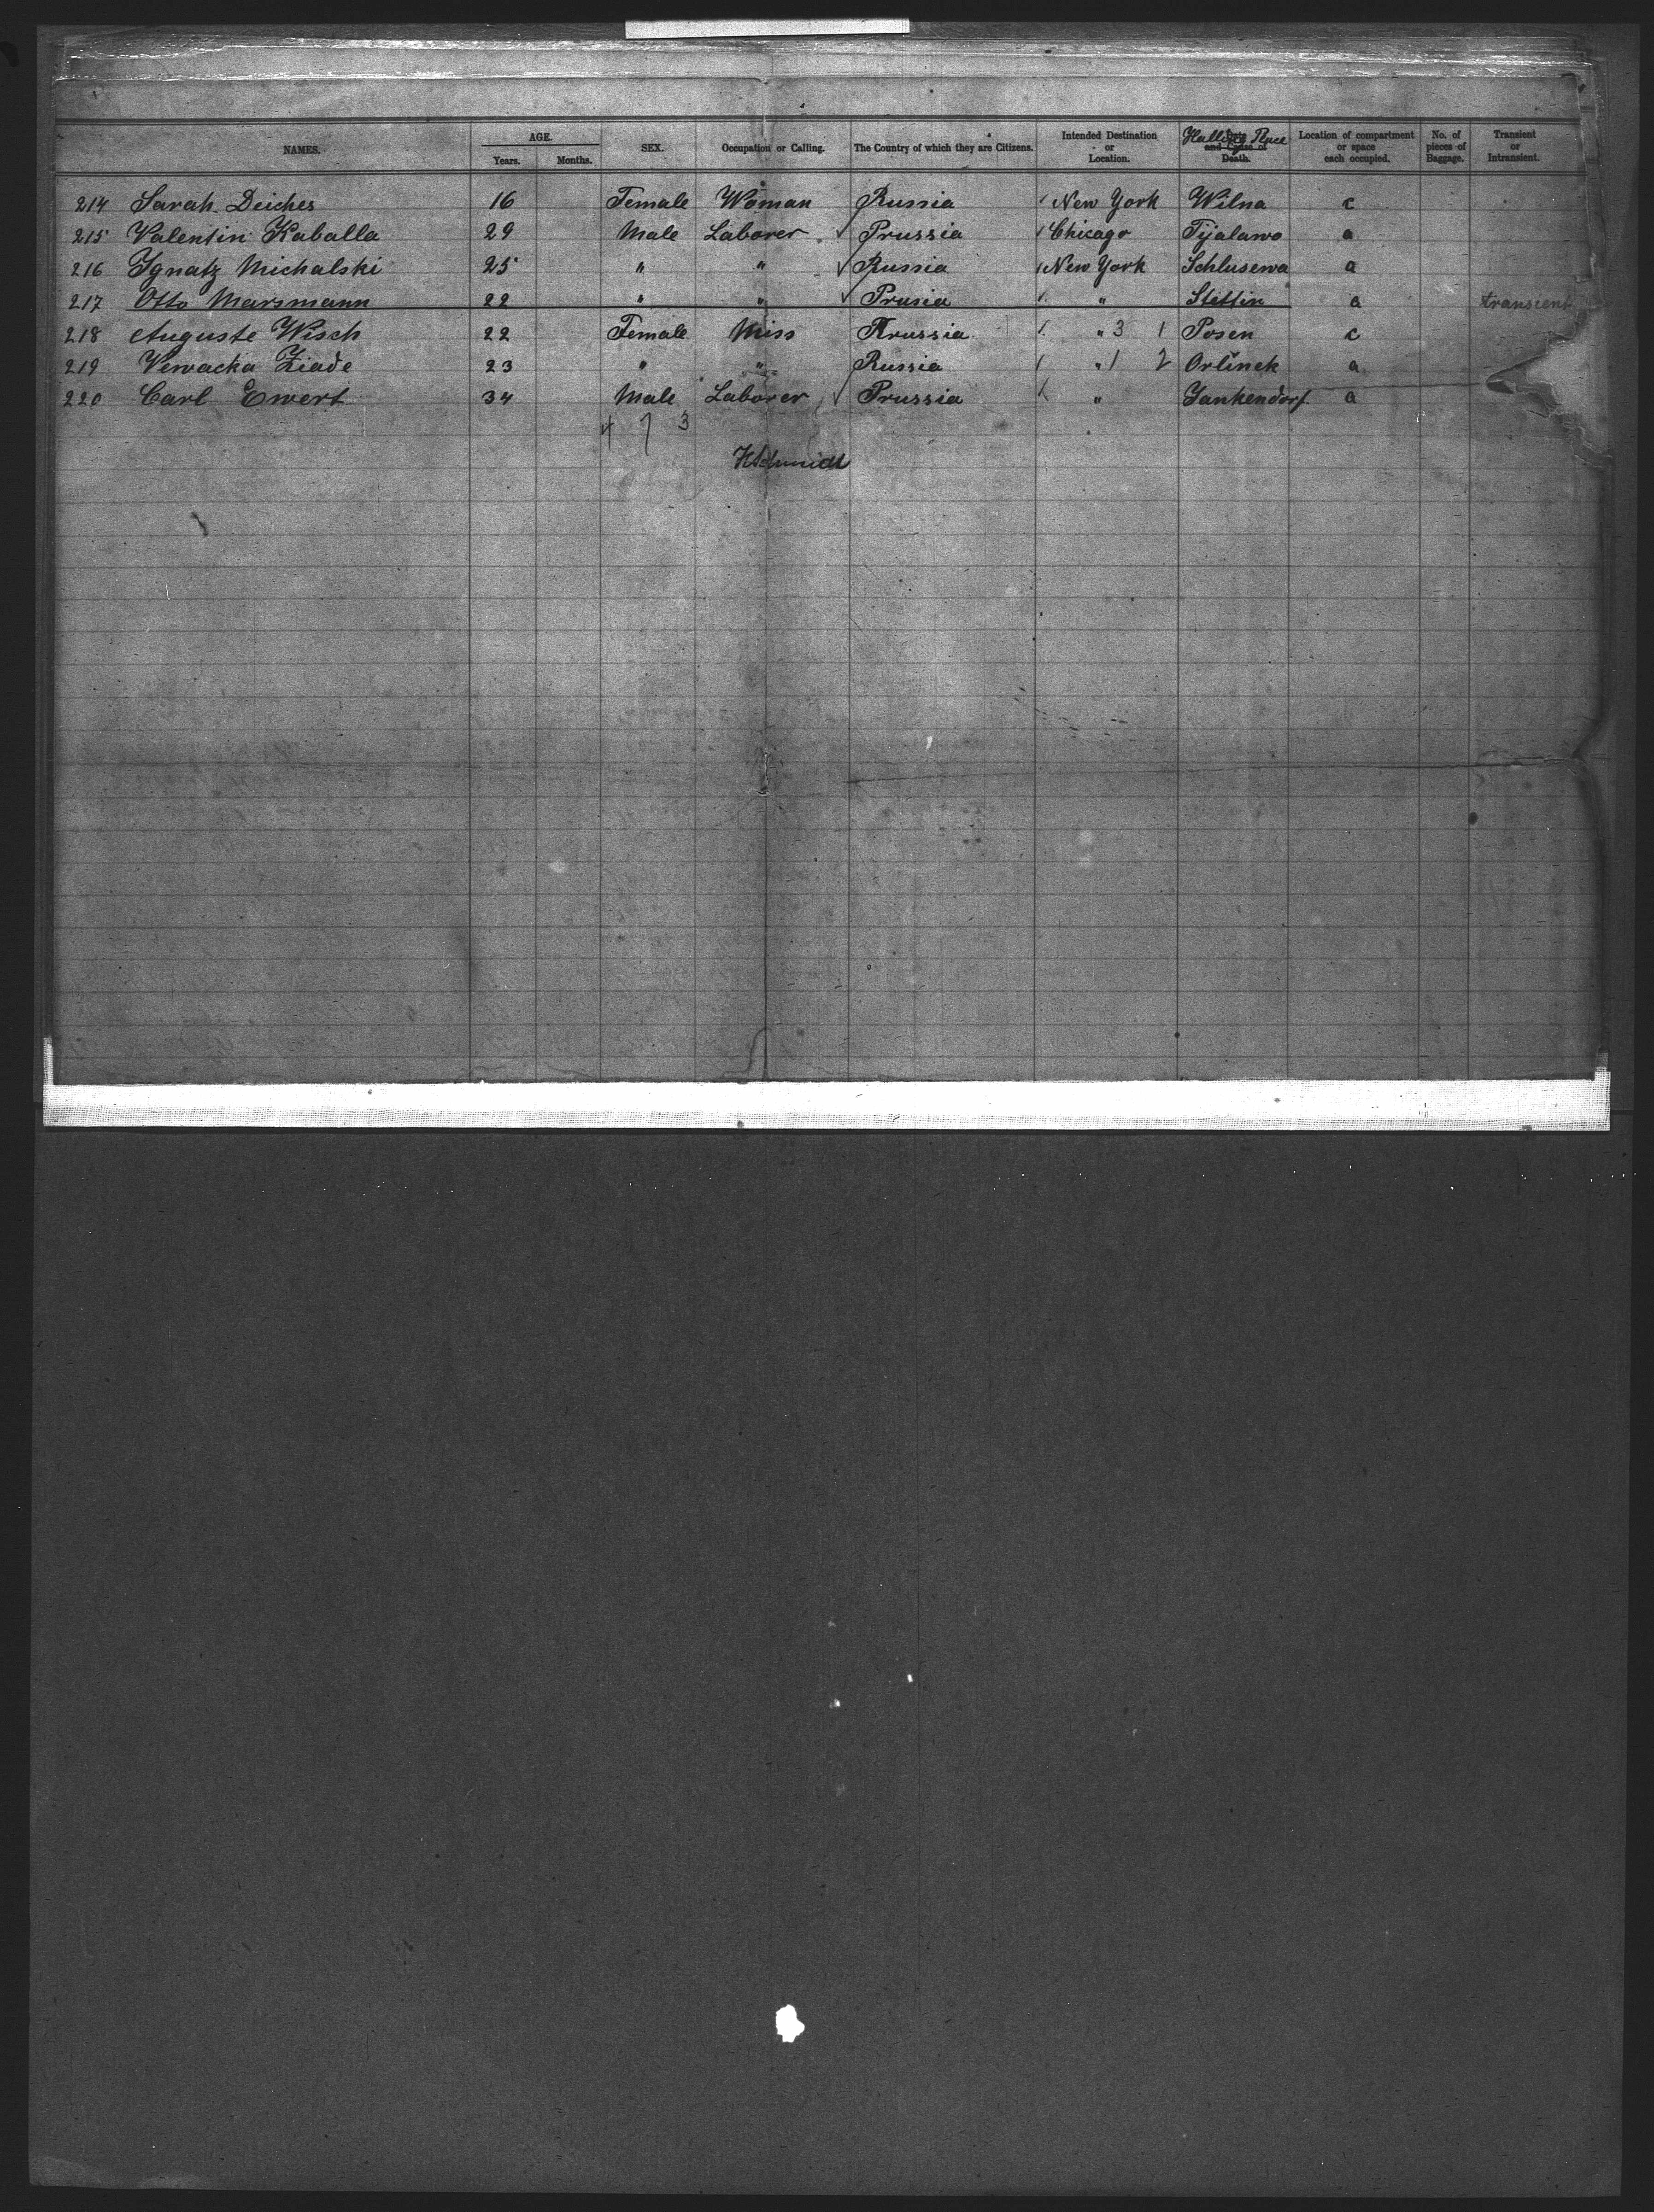 NAMES. AGE. Years. Months. SEX. Occupation or Calling. The Country of which they are Citizens. Intended Destination or Location. Date and Cause of Death. Location of compartment or space each occupied. No. of pieces of Baggage. Transient or Intransient.
214 Sarah Deiches 16 Female Woman Russia New York Wilna c
215 Valentin Kaballa 29 Male Laborer Prussia Chicago Tijalawo a
216 Ignatz Michalski 25 " " Russia New York Schlusewa a
217 Otto Marsmann 22 " " Prusia " Stettin a transient
218 Auguste Wisch 22 Female Miss Prussia " 3 1 Posen c
219 Vewacka Ziade 23 " " Russia " 1 2 Orlinek a
220 Carl Ewert 34 Male Laborer Prussia " Jankendorf. a
4 7 3
KSchmidt